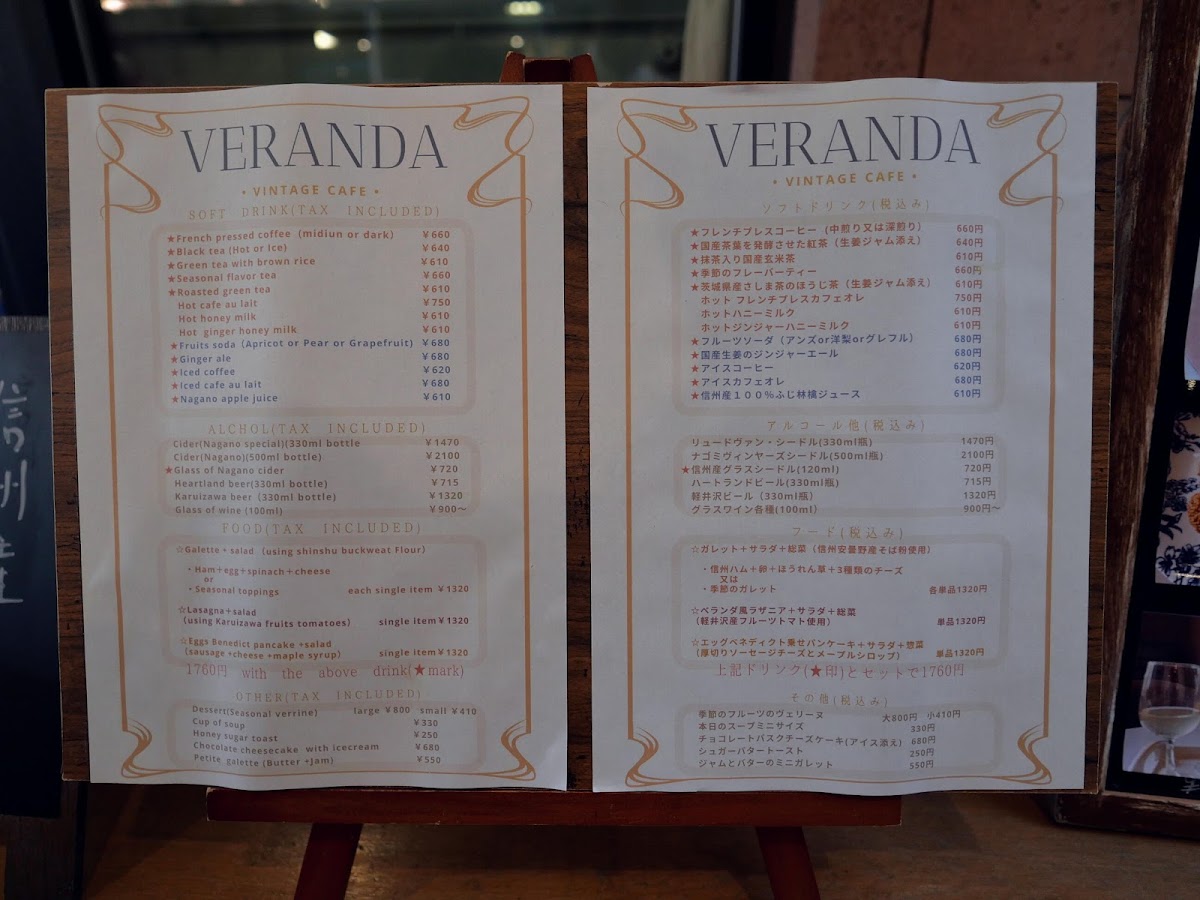 VERANDA
・VINTAGE CAFE・
SOFT DRINK(TAX INCLUDED)
★French pressed coffee (midiun or dark) ￥660
★Black tea (Hot or Ice) ￥640
★Green tea with brown rice ￥610
★Seasonal flavor tea ￥660
★Roasted green tea ￥610
Hot cafe au lait ￥750
Hot honey milk ￥610
Hot ginger honey milk ￥610
★Fruits soda (Apricot or Pear or Grapefruit) ￥680
★Ginger ale ￥680
★Iced coffee ￥620
★Iced cafe au lait ￥680
★Nagano apple juice ￥610
ALCHOL(TAX INCLUDED)
Cider(Nagano special)(330ml bottle ￥1470
Cider(Nagano)(500ml bottle) ￥2100
★Glass of Nagano cider ￥720
Heartland beer(330ml bottle) ￥715
Karuizawa beer (330ml bottle) ￥1320
Glass of wine (100ml) ￥900～
FOOD(TAX INCLUDED)
☆Galette + salad (using shinshu buckweat Flour)
・Ham＋egg＋spinach＋cheese
or
・Seasonal toppings each single item ￥1320
☆Lasagna＋salad
(using Karuizawa fruits tomatoes) single item￥1320
☆Eggs Benedict pancake +salad
(sausage +cheese +maple syrup) single item￥1320
1760円 with the above drink(★mark)
OTHER(TAX INCLUDED)
Dessert(Seasonal verrine) large ￥800 small ￥410
Cup of soup ￥330
Honey sugar toast ￥250
Chocolate cheesecake with icecream ￥680
Petite galette (Butter +Jam) ￥550
VERANDA
・VINTAGE CAFE・
ソフトドリンク(税込み)
★フレンチプレスコーヒー (中煎り又は深煎り) 660円
★国産茶葉を発酵させた紅茶（生姜ジャム添え） 640円
★抹茶入り国産玄米茶 610円
★季節のフレーバーティー 660円
★茨城県産さしま茶のほうじ茶（生姜ジャム添え） 610円
ホット フレンチプレスカフェオレ 750円
ホットハニーミルク 610円
ホットジンジャーハニーミルク 610円
★フルーツソーダ（アンズor洋梨orグレフル） 680円
★国産生姜のジンジャーエール 680円
★アイスコーヒー 620円
★アイスカフェオレ 680円
★信州産１００％ふじ林檎ジュース 610円
アルコール他(税込み)
リュードヴァン・シードル(330ml瓶) 1470円
ナゴミヴィンヤーズシードル(500ml瓶) 2100円
★信州産グラスシードル(120ml) 720円
ハートランドビール(330ml瓶) 715円
軽井沢ビール（330ml瓶） 1320円
グラスワイン各種(100ml） 900円～
フード(税込み)
☆ガレット＋サラダ＋総菜（信州安曇野産そば粉使用）
・信州ハム＋卵＋ほうれん草＋3種類のチーズ
又は
・季節のガレット 各単品1320円
☆ベランダ風ラザニア＋サラダ＋総菜
（軽井沢産フルーツトマト使用） 単品1320円
☆エッグベネディクト乗せパンケーキ＋サラダ＋惣菜
（厚切りソーセージチーズとメープルシロップ） 単品1320円
上記ドリンク(★印)とセットで1760円
その他(税込み)
季節のフルーツのヴェリーヌ 大800円 小410円
本日のスープミニサイズ 330円
チョコレートバスクチーズケーキ(アイス添え) 680円
シュガーバタートースト 250円
ジャムとバターのミニガレット 550円
信州